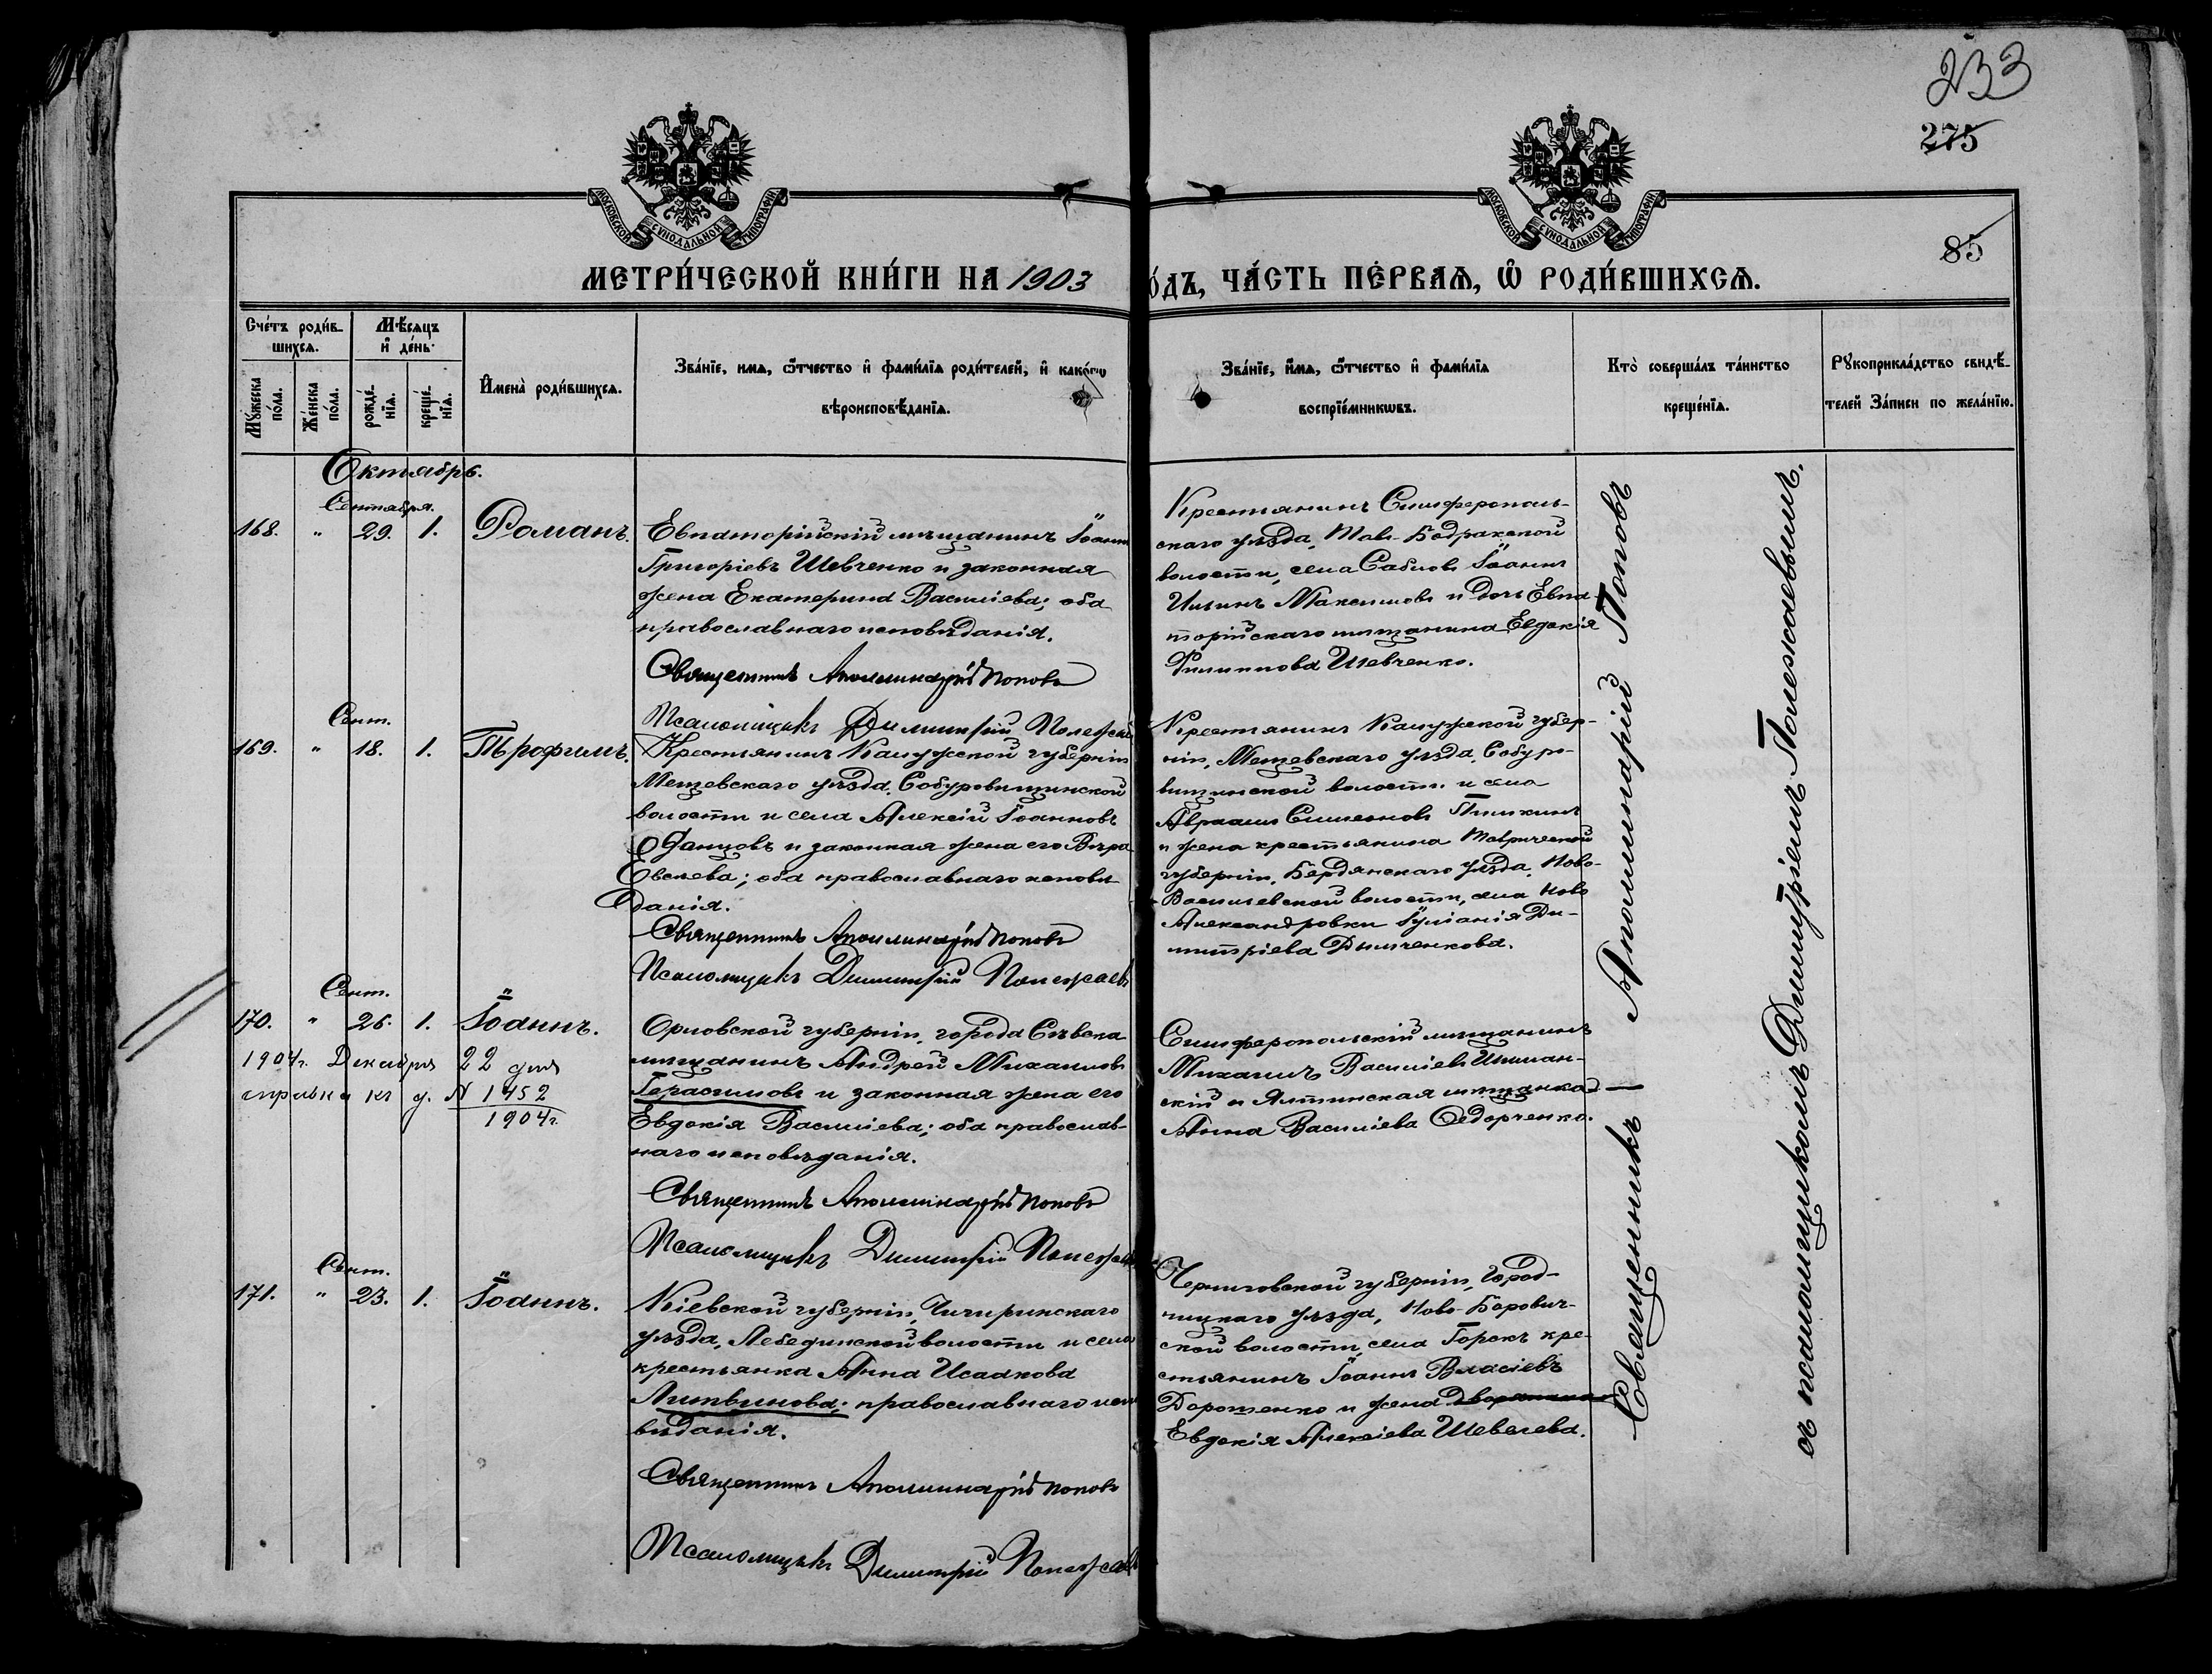 233
275
85
МОСКОВСКОЙ СУНОДАЛЬНОЙ ТИПОГРАФІИ
МОСКОВСКОЙ СУНОДАЛЬНОЙ ТИПОГРАФІИ
МЕТРИ́ЧЕСКОЙ КНИ́ГИ НА 1903
О́ДЪ, ЧА́СТЬ ПЕ́РВАѦ, Ѿ РОДИ́ВШИХСѦ.
Сче́тъ роди́в-
шихсѧ.
Мѣ́сѧцъ
и҆ де́нь.
Мꙋ́жеска
по́ла.
Же́нска
по́ла.
рожде́-
нїѧ.
креще́-
нїѧ.
И҆мена̀ роди́вшихсѧ.
Зва́нїе, имѧ, ѻ҆́тчество и҆ фами́лїѧ роди́телей, и҆ како́гѡ
вѣроисповѣ́данїѧ.
Зва́нїе, и҆́мѧ, ѻ҆́тчество и҆ фами́лїѧ
воспрїе́мникѡвъ.
Кто̀ соверша́лъ та́инство
креще́нїѧ.
Рꙋкоприкла́дство свидѣ́-
телей За́писи по жела́нїю.
Октябрь.
Сентября.
168. " 29. 1. Романъ.
Евпаторійскій мѣщанинъ Іоаннъ
Григоріевъ Шевченко и законная
жена Екатерина Василіева; оба
православнаго исповѣданія.
Священникъ Аполлинарій Поповъ
Псаломщикъ Димитрій Полежаевъ
Крестьянинъ Симферополь-
скаго уѣзда, Тав-Бодракской
волости, села Саблов Іоаннъ
Ильинъ Максимовъ и дочь Евпа-
торійскаго мѣщанина Евдокія
Филиппова Шевченко.
Сент.
169. " 18. 1. Трофимъ.
Крестьянинъ Калужской губерніи
Мещевскаго уѣзда, Собуровщинской
волости и села Алексій Іоанновъ
Оданцовъ и законная жена его Вѣра
Евсеева; оба православнаго исповѣ-
данія.
Священникъ Аполлинарій Поповъ
Псаломщикъ Димитрій Полежаевъ
Крестьянинъ Калужской губер-
ніи, Мещевскаго уѣзда, Собуро-
вщинской волости и села
Авраамъ Симеоновъ Пишкинъ
и жена крестьянина Таврической
губерніи, Бердянскаго уѣзда, Ново-
Васильевской волости, села Ново
Александровки Іуліанія Ди-
митріева Дымченкова.
Сент.
170. " 26. 1. Іоаннъ.
1904г. Декабря 22 дня
справка къ д. N 1452
1904г.
Орловской губерніи, города Сѣвска
мѣщанинъ Андрей Михаиловъ
Герасимовъ и законная жена его
Евдокія Василіева; оба православ-
наго исповѣданія.
Священникъ Аполлинарій Поповъ
Псаломщикъ Димитрій Полежаевъ
Симферопольскій мѣщанинъ
Михаилъ Василіевъ Шиман-
скій и Ялтинская мѣщанка
Анна Василіева Ѳедорченко.
Сент.
171. " 23. 1. Іоаннъ.
Кіевской губерніи, Чигиринскаго
уѣзда, Лебединской волости и села
крестьянка Анна Исаакова
Литвинова; православнаго испо-
вѣданія.
Священникъ Аполлинарій Поповъ
Псаломщикъ Димитрій Полежаевъ
Черниговской губерніи, Город-
ницкаго уѣзда, Ново-Борович-
ской волости, села Горскъ кре-
стьянинъ Іоаннъ Власіевъ
Дорошенко и жена
Евдокія Алексіева Шевелева.
Священникъ Аполлинарій Поповъ
съ псаломщикомъ Димитріемъ Полежаевымъ.